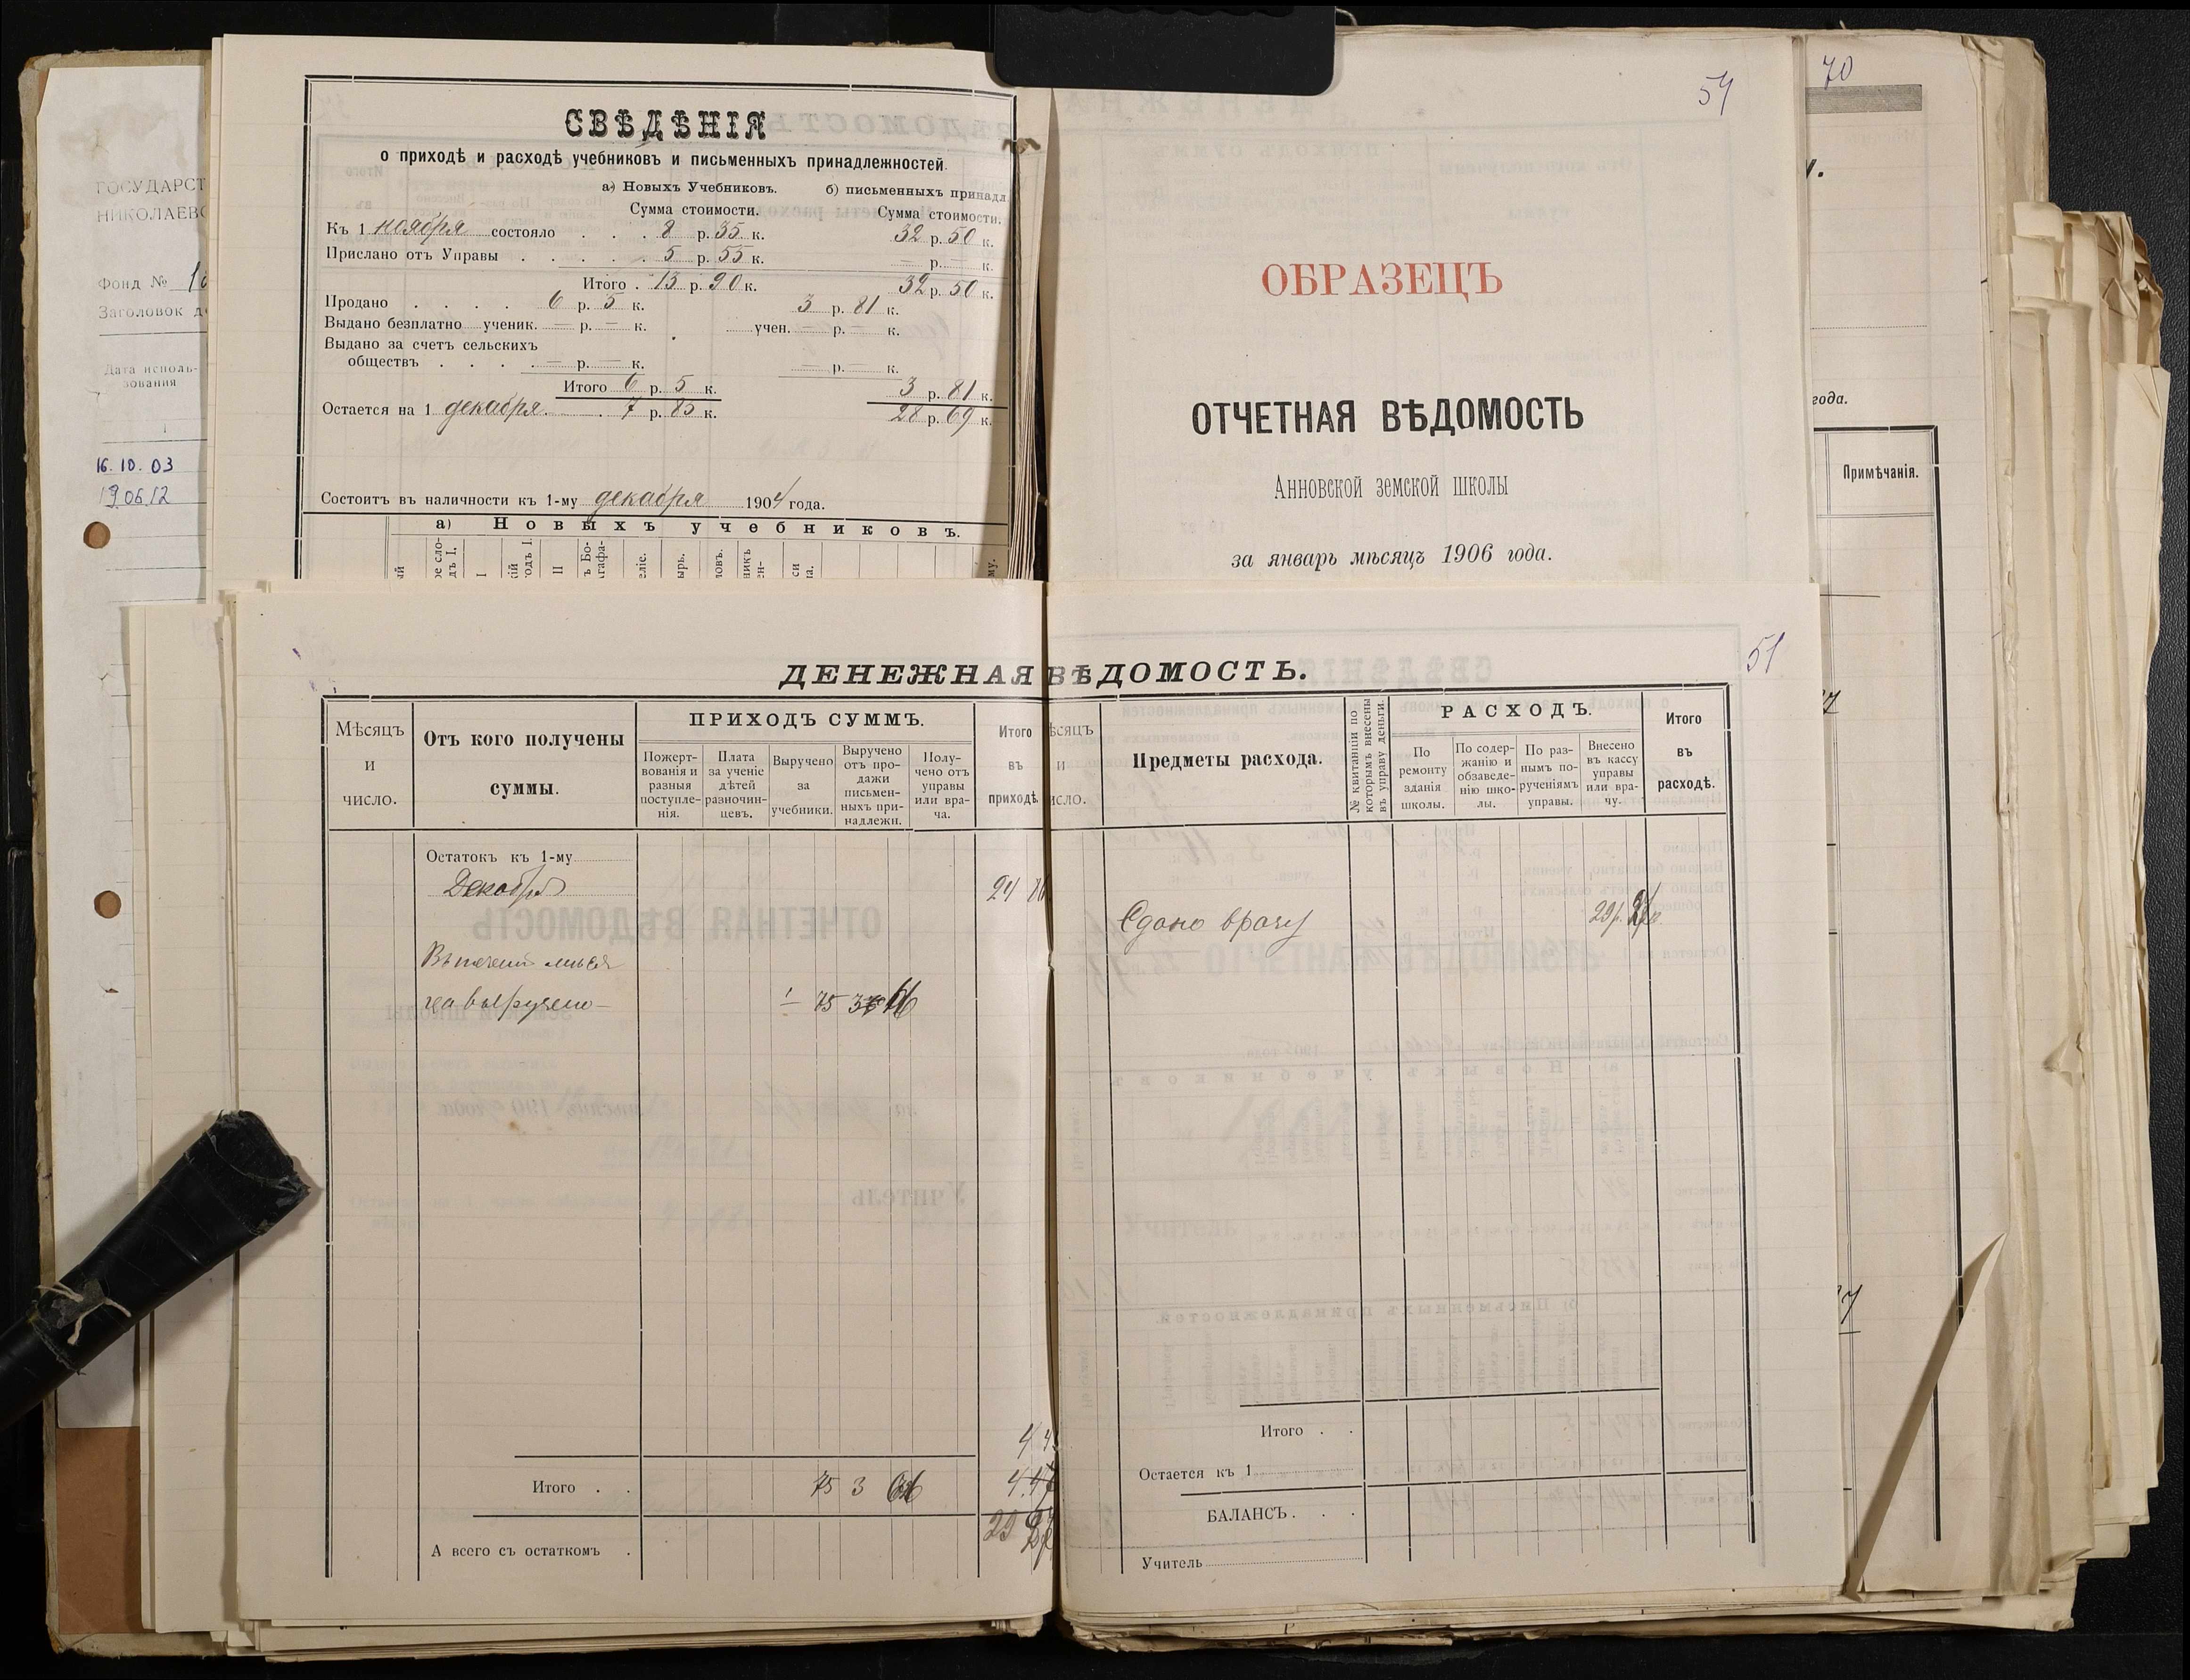 ГОСУДАРСТ
НИКОЛАЕВС
Фонд № 1
Заголовок д
Дата исполь-
зования
1
16.10.03
19.06.12
СВѢДѢНІЯ
о приходѣ и расходѣ учебниковъ и письменныхъ принадлежностей.
а) Новыхъ Учебниковъ. б) письменныхъ принадл.
Сумма стоимости. Сумма стоимости.
Къ 1 ноября состояло . . . 8 р. 35 к. 32 р. 50 к.
Прислано отъ Управы . . . . . 5 р. 55 к. — р. — к.
Итого . 13 р. 90 к. 32 р. 50 к.
Продано . . . . 6 р. 5 к. 3 р. 81 к.
Выдано безплатно ученик. — р. — к. учен. — р. — к.
Выдано за счетъ сельскихъ
обществъ . . . . — р. — к. — р. — к.
Итого 6 р. 5 к. 3 р. 81 к.
Остается на 1 декабря . 7 р. 85 к. 28 р. 69 к.
Состоитъ въ наличности къ 1-му декабря 1904 года.
а) Новыхъ учебниковъ.
54
ОБРАЗЕЦЪ
ОТЧЕТНАЯ ВѢДОМОСТЬ
Анновской земской школы
за январь мѣсяцъ 1906 года.
70
года.
Примѣчанія.
51
ДЕНЕЖНАЯ ВѢДОМОСТЬ.
Мѣсяцъ
и
число.
Отъ кого получены
суммы.
ПРИХОДЪ СУММЪ.
Пожерт-
вованія и
разныя
поступле-
нія.
Плата
за ученіе
дѣтей
разночин-
цевъ.
Выручено
за
учебники.
Выручено
отъ про-
дажи
письмен-
ныхъ при-
надлежн.
Полу-
чено отъ
управы
или вра-
ча.
Итого
въ
приходѣ.
Остатокъ къ 1-му
Декабря
24
75 3
Итого . . 75 3
А всего съ остаткомъ .
ѣсяцъ
и
исло.
Предметы расхода.
№ квитанціи по
которымъ внесены
въ управу деньги.
РАСХОДЪ.
По
ремонту
зданія
школы.
По содер-
жанію и
обзаведе-
нію шко-
лы.
По раз-
нымъ по-
рученіямъ
управы.
Внесено
въ кассу
управы
или вра-
чу.
Итого
въ
расходѣ.
Сдано врачу 29 р.
Итого . .
Остается къ 1
БАЛАНСЪ . . .
Учитель